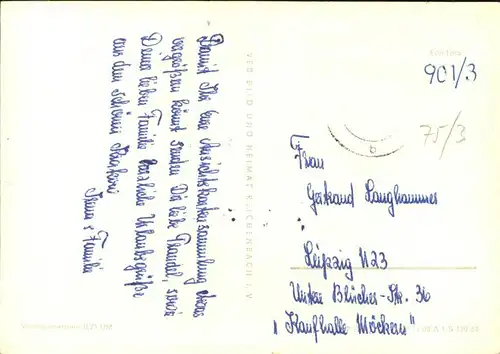 Damit Ihr eure Ansichtskartensammlung etwas
vergrößern könnt senden Dir liebe Traudel, sowie
Deiner lieben Familie herzliche Urlaubsgrüße
aus dem schönen
u. Familie
VEB BILD UND HEIMAT REICHENBACH I. V.
901/3
75/3
Frau
Gertraud Langhammer
Leipzig N23
Untere Blücher-Str. 36
"Kaufhalle Möckern"